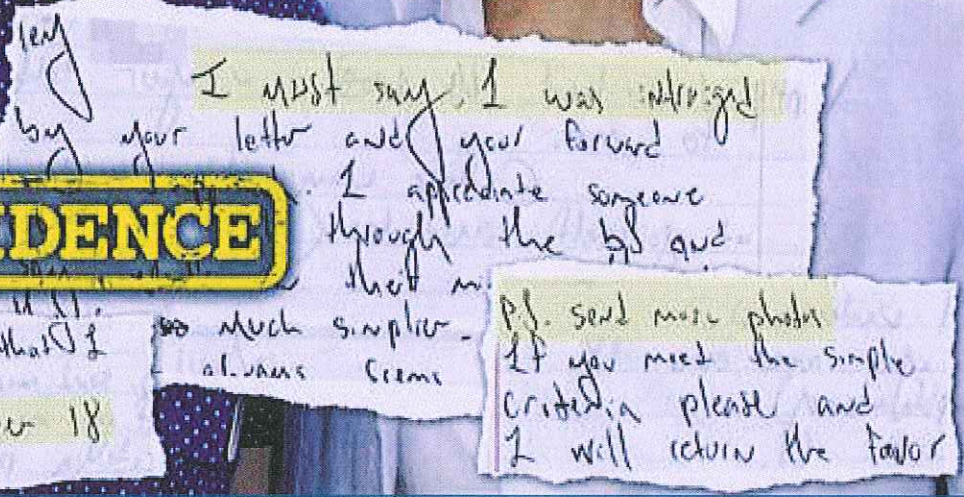 I must say I was intruiged
by your letter and your forward
I appreciate someone
through the bs and
their
so much simplier
always seems
DENCE
that I
18
P.S. send more photos
If you meet the simple
criteria please and
I will return the favor